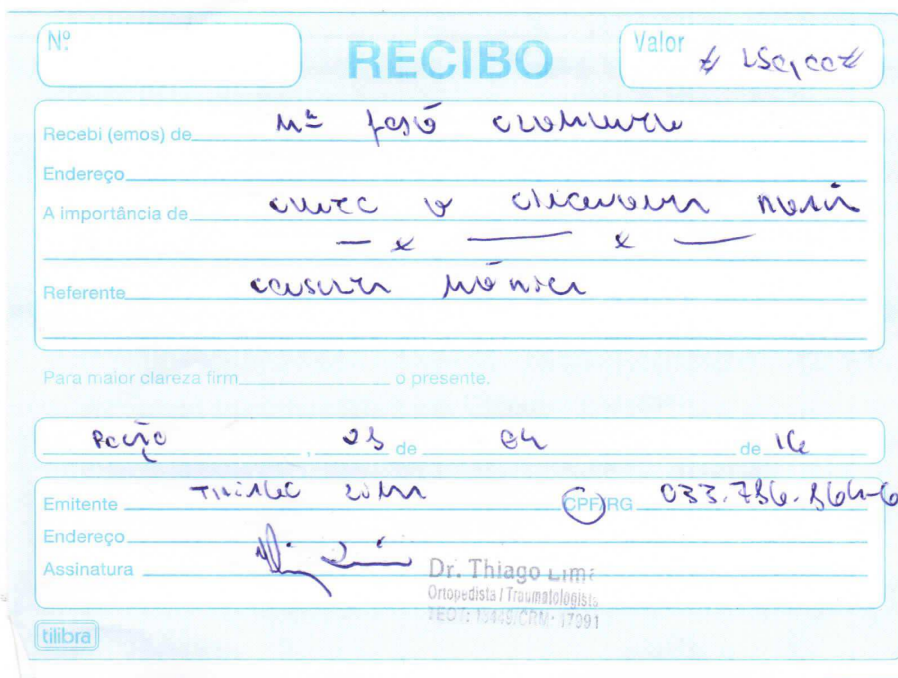 Nº
RECIBO
Valor # 150,00#
Recebi (emos) de Mª José
Endereço
A importância de cento e cinquenta reais
Referente consulta médica
Para maior clareza firm o presente.
, de 04 de 16
Emitente Thiago Lima CPF/RG 033.786.864-6
Endereço
Assinatura
Dr. Thiago Lima
Ortopedista / Traumatologista
TEOT: 13449/CRM: 17991
tilibra